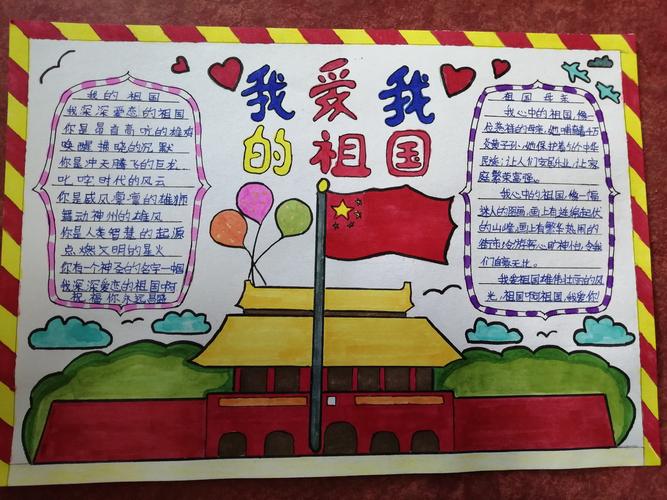 我爱我
的祖国
我的祖国
我深深爱恋的祖国
你是昂首高吭的雄鸡
唤醒拂晓的沉默
你是冲天腾飞的巨龙
叱咤时代的风云
你是威风凛凛的雄狮
舞动神州的雄风
你是人类智慧的起源
点燃文明的星火
你有一个神圣的名字一中国
我深深爱恋的祖国啊
祝福你永远昌盛
祖国母亲
我心中的祖国,像一
位慈祥的母亲,她哺育千万
炎黄子孙,她保护着5个中华
民族;让人们安居乐业,让家
庭繁荣富强。
我心中的祖国,像一幅
迷人的图画,画上有连绵起伏
的山峰,画上有繁华热闹的
街市,令游客心旷神怡,令我
们自豪不比。
我爱祖国雄伟壮丽的风
光,祖国啊祖国,我爱你!